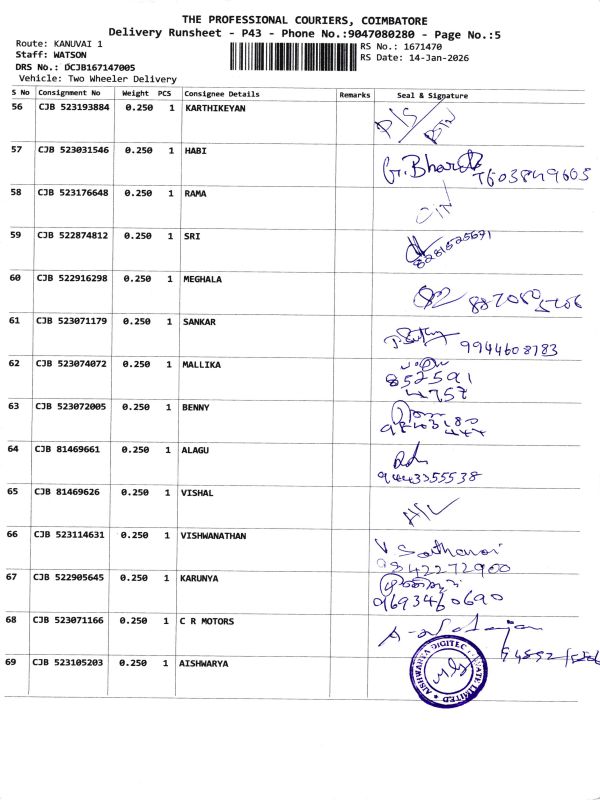 THE PROFESSIONAL COURIERS, COIMBATORE
Delivery Runsheet - P43 - Phone No.:9047080280 - Page No.:5
Route: KANUVAI 1
Staff: WATSON
DRS No.: DCJB167147005
Vehicle: Two Wheeler Delivery
RS No.: 1671470
RS Date: 14-Jan-2026
S No Consignment No Weight PCS Consignee Details Remarks Seal & Signature
56 CJB 523193884 0.250 1 KARTHIKEYAN D/S
57 CJB 523031546 0.250 1 HABI G.Bharath 7603849605
58 CJB 523176648 0.250 1 RAMA
59 CJB 522874812 0.250 1 SRI 8281525691
60 CJB 522916298 0.250 1 MEGHALA
61 CJB 523071179 0.250 1 SANKAR 9944608783
62 CJB 523074072 0.250 1 MALLIKA 852591
4757
63 CJB 523072005 0.250 1 BENNY
64 CJB 81469661 0.250 1 ALAGU
9443355538
65 CJB 81469626 0.250 1 VISHAL
66 CJB 523114631 0.250 1 VISHWANATHAN V
9842272900
67 CJB 522905645 0.250 1 KARUNYA
9693460690
68 CJB 523071166 0.250 1 C R MOTORS
69 CJB 523105203 0.250 1 AISHWARYA
AISHWARYA DIGITEC PRIVATE LIMITED